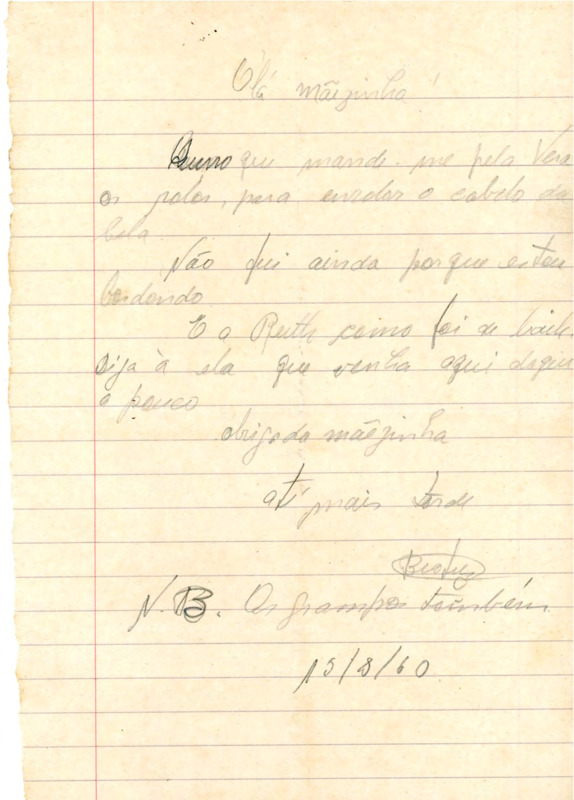 Olá mãezinha!
Quero que mande-me pela Vera
os rolos, para enrolar o cabelo da
Não fui ainda porque estou
bordando
E a Ruth como foi de baile.
Diga à ela que venha aqui daqui
a pouco
obrigada mãezinha
até mais tarde
Beatriz
N.B. Os grampos também.
15/8/60